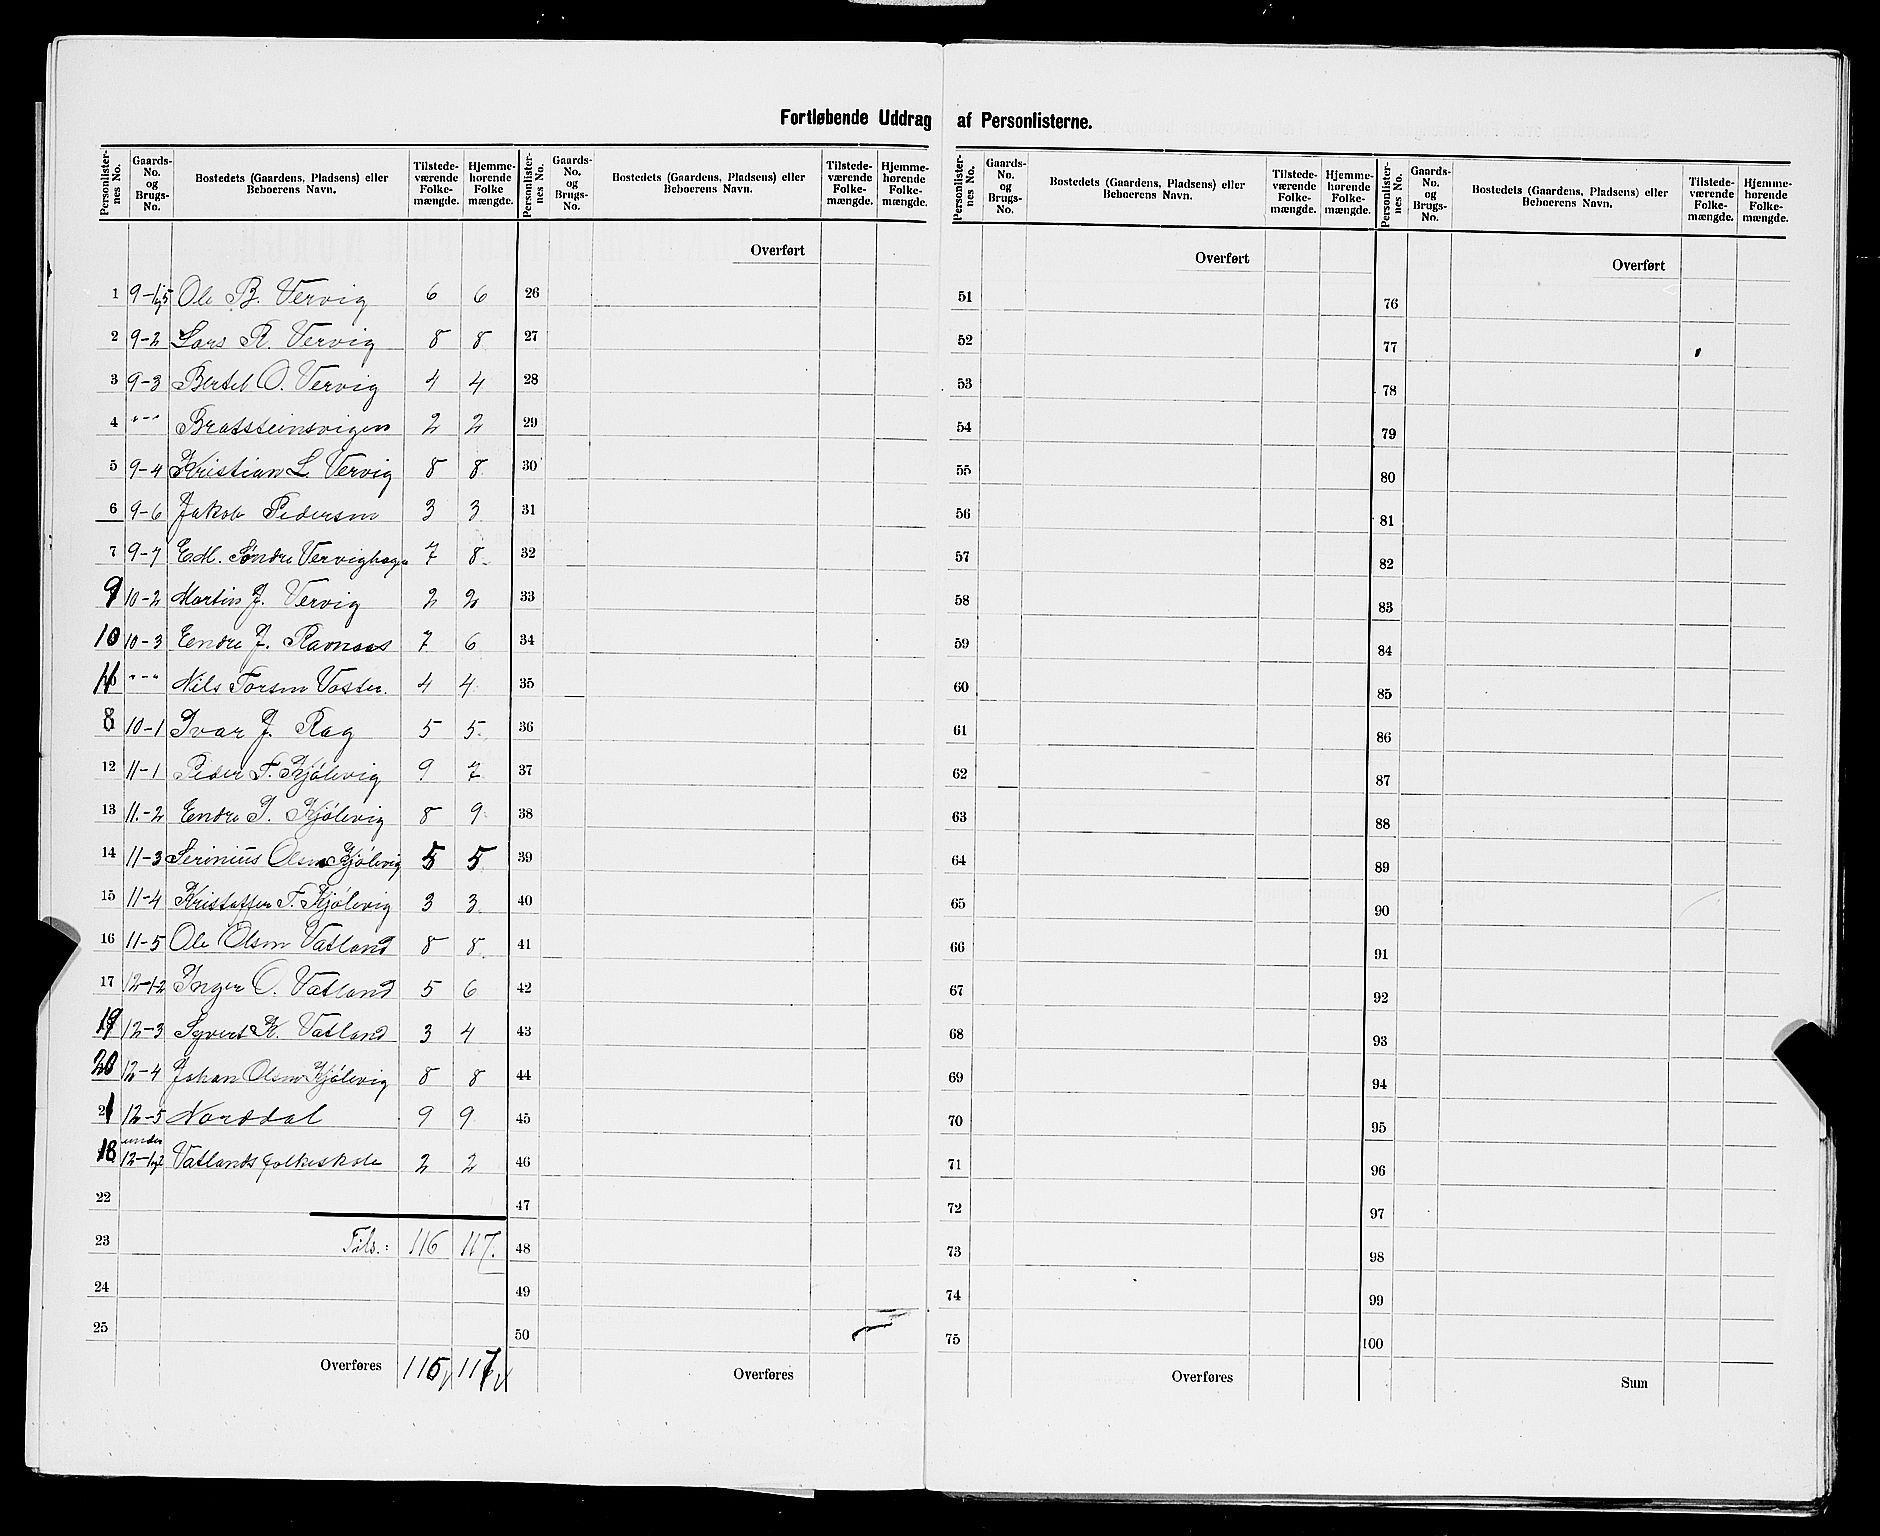 Fortløbende Uddrag af Personlisterne.
Personlisternes No. | Gaards-No. og Brugs-No. | Bostedets (Gaardens, Pladsens) eller Beboerens Navn. | Tilstedeværende Folkemængde. | Hjemmehørende Folkemængde.
1 9-1 og 5 Ole B. Vervig 6 6
2 9-2 Lars R. Vervig 8 8
3 9-3 Bertel O. Vervig 4 4
4 "-" Bratsteinsvigen 2 2
5 9-4 Kristian L. Vervig 8 8
6 9-6 Jakob Pedersen 3 3
7 9-7 E.M. Søndre Vervighagen 7 8
9 10-2 Martin J. Vervig 2 2
10 10-3 Endre J. Ramsas 7 6
11 "-" Nils Torsen 4 4
8 10-1 Ivar J. Rag 5 5
12 11-1 Peder T. Kjölevig 9 7
13 11-2 Endre P. Kjölevig 8 9
14 11-3 Serinius Olsen Kjölevig 5 5
15 11-4 Kristoffer T. Kjölevig 3 3
16 11-5 Ole Olsen Vatland 8 8
17 12-1-2 Inger O. Vatland 5 6
19 12-3 Syvert K. Vatland 3 4
20 12-4 Johan Olsen Kjölevig 8 8
21 12-5 Norddal 9 9
18 under 12-1 og 2 Vatlands folkeskole 2 2
22
23 Tils.: 116 117.
24
25
Overføres 116 117
Personlisternes No. | Gaards-No. og Brugs-No. | Bostedets (Gaardens, Pladsens) eller Beboerens Navn. | Tilstedeværende Folkemængde. | Hjemmehørende Folkemængde.
Overført
26
27
28
29
30
31
32
33
34
35
36
37
38
39
40
41
42
43
44
45
46
47
48
49
50
Overføres
Personlisternes No. | Gaards-No. og Brugs-No. | Bostedets (Gaardens, Pladsens) eller Beboerens Navn. | Tilstedeværende Folkemængde. | Hjemmehørende Folkemængde.
Overført
51
52
53
54
55
56
57
58
59
60
61
62
63
64
65
66
67
68
69
70
71
72
73
74
75
Overføres
Personlisternes No. | Gaards-No. og Brugs-No. | Bostedets (Gaardens, Pladsens) eller Beboerens Navn. | Tilstedeværende Folkemængde. | Hjemmehørende Folkemængde.
Overført
76
77
78
79
80
81
82
83
84
85
86
87
88
89
90
91
92
93
94
95
96
97
98
99
100
Sum